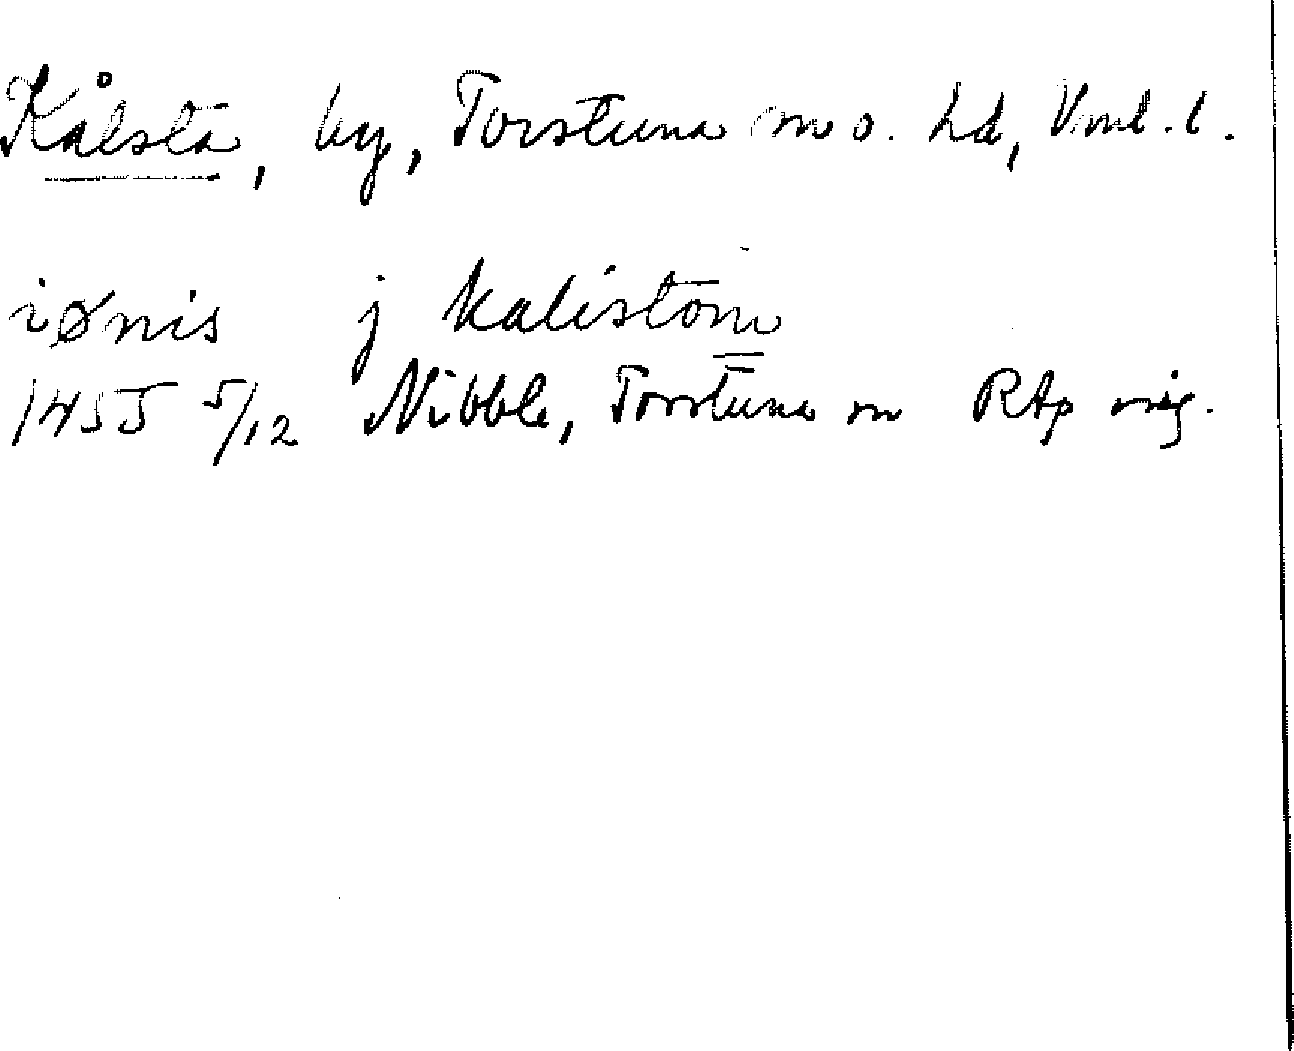 Kålsta, by, Torstuna sn o. hd, Vml. l.
iønis j kalistom
1455 5/12 Nibble, Torstuna sn RAp orig.